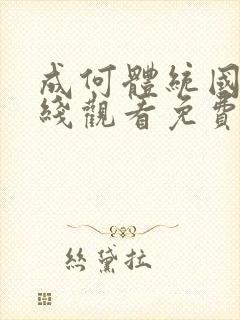 成何體統國
綫觀看免費
絲黛拉